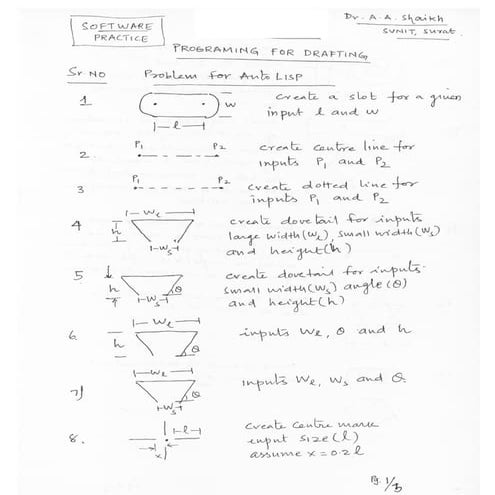 SOFTWARE
PRACTICE
Dr. A. A. Shaikh
SVNIT, Surat.
PROGRAMING FOR DRAFTING
Sr No Problem for Auto LISP
1 create a slot for a given
input l and w
w
l
2. create centre line for
inputs P1 and P2
P1 P2
3 create dotted line for
inputs P1 and P2
P1 P2
4 create dovetail for inputs
large width (Wl), small width (Ws)
and height (h)
Wl
h
Ws
5 create dovetail for inputs.
small width (Ws) angle (θ)
and height (h)
h
Ws θ
6. inputs Wl, θ and h
Wl
h
θ
7) inputs Wl, Ws and θ.
Wl
Ws θ
8. create centre mark
input size (l)
assume x = 0.2 l
l
x
Pg. 1/3